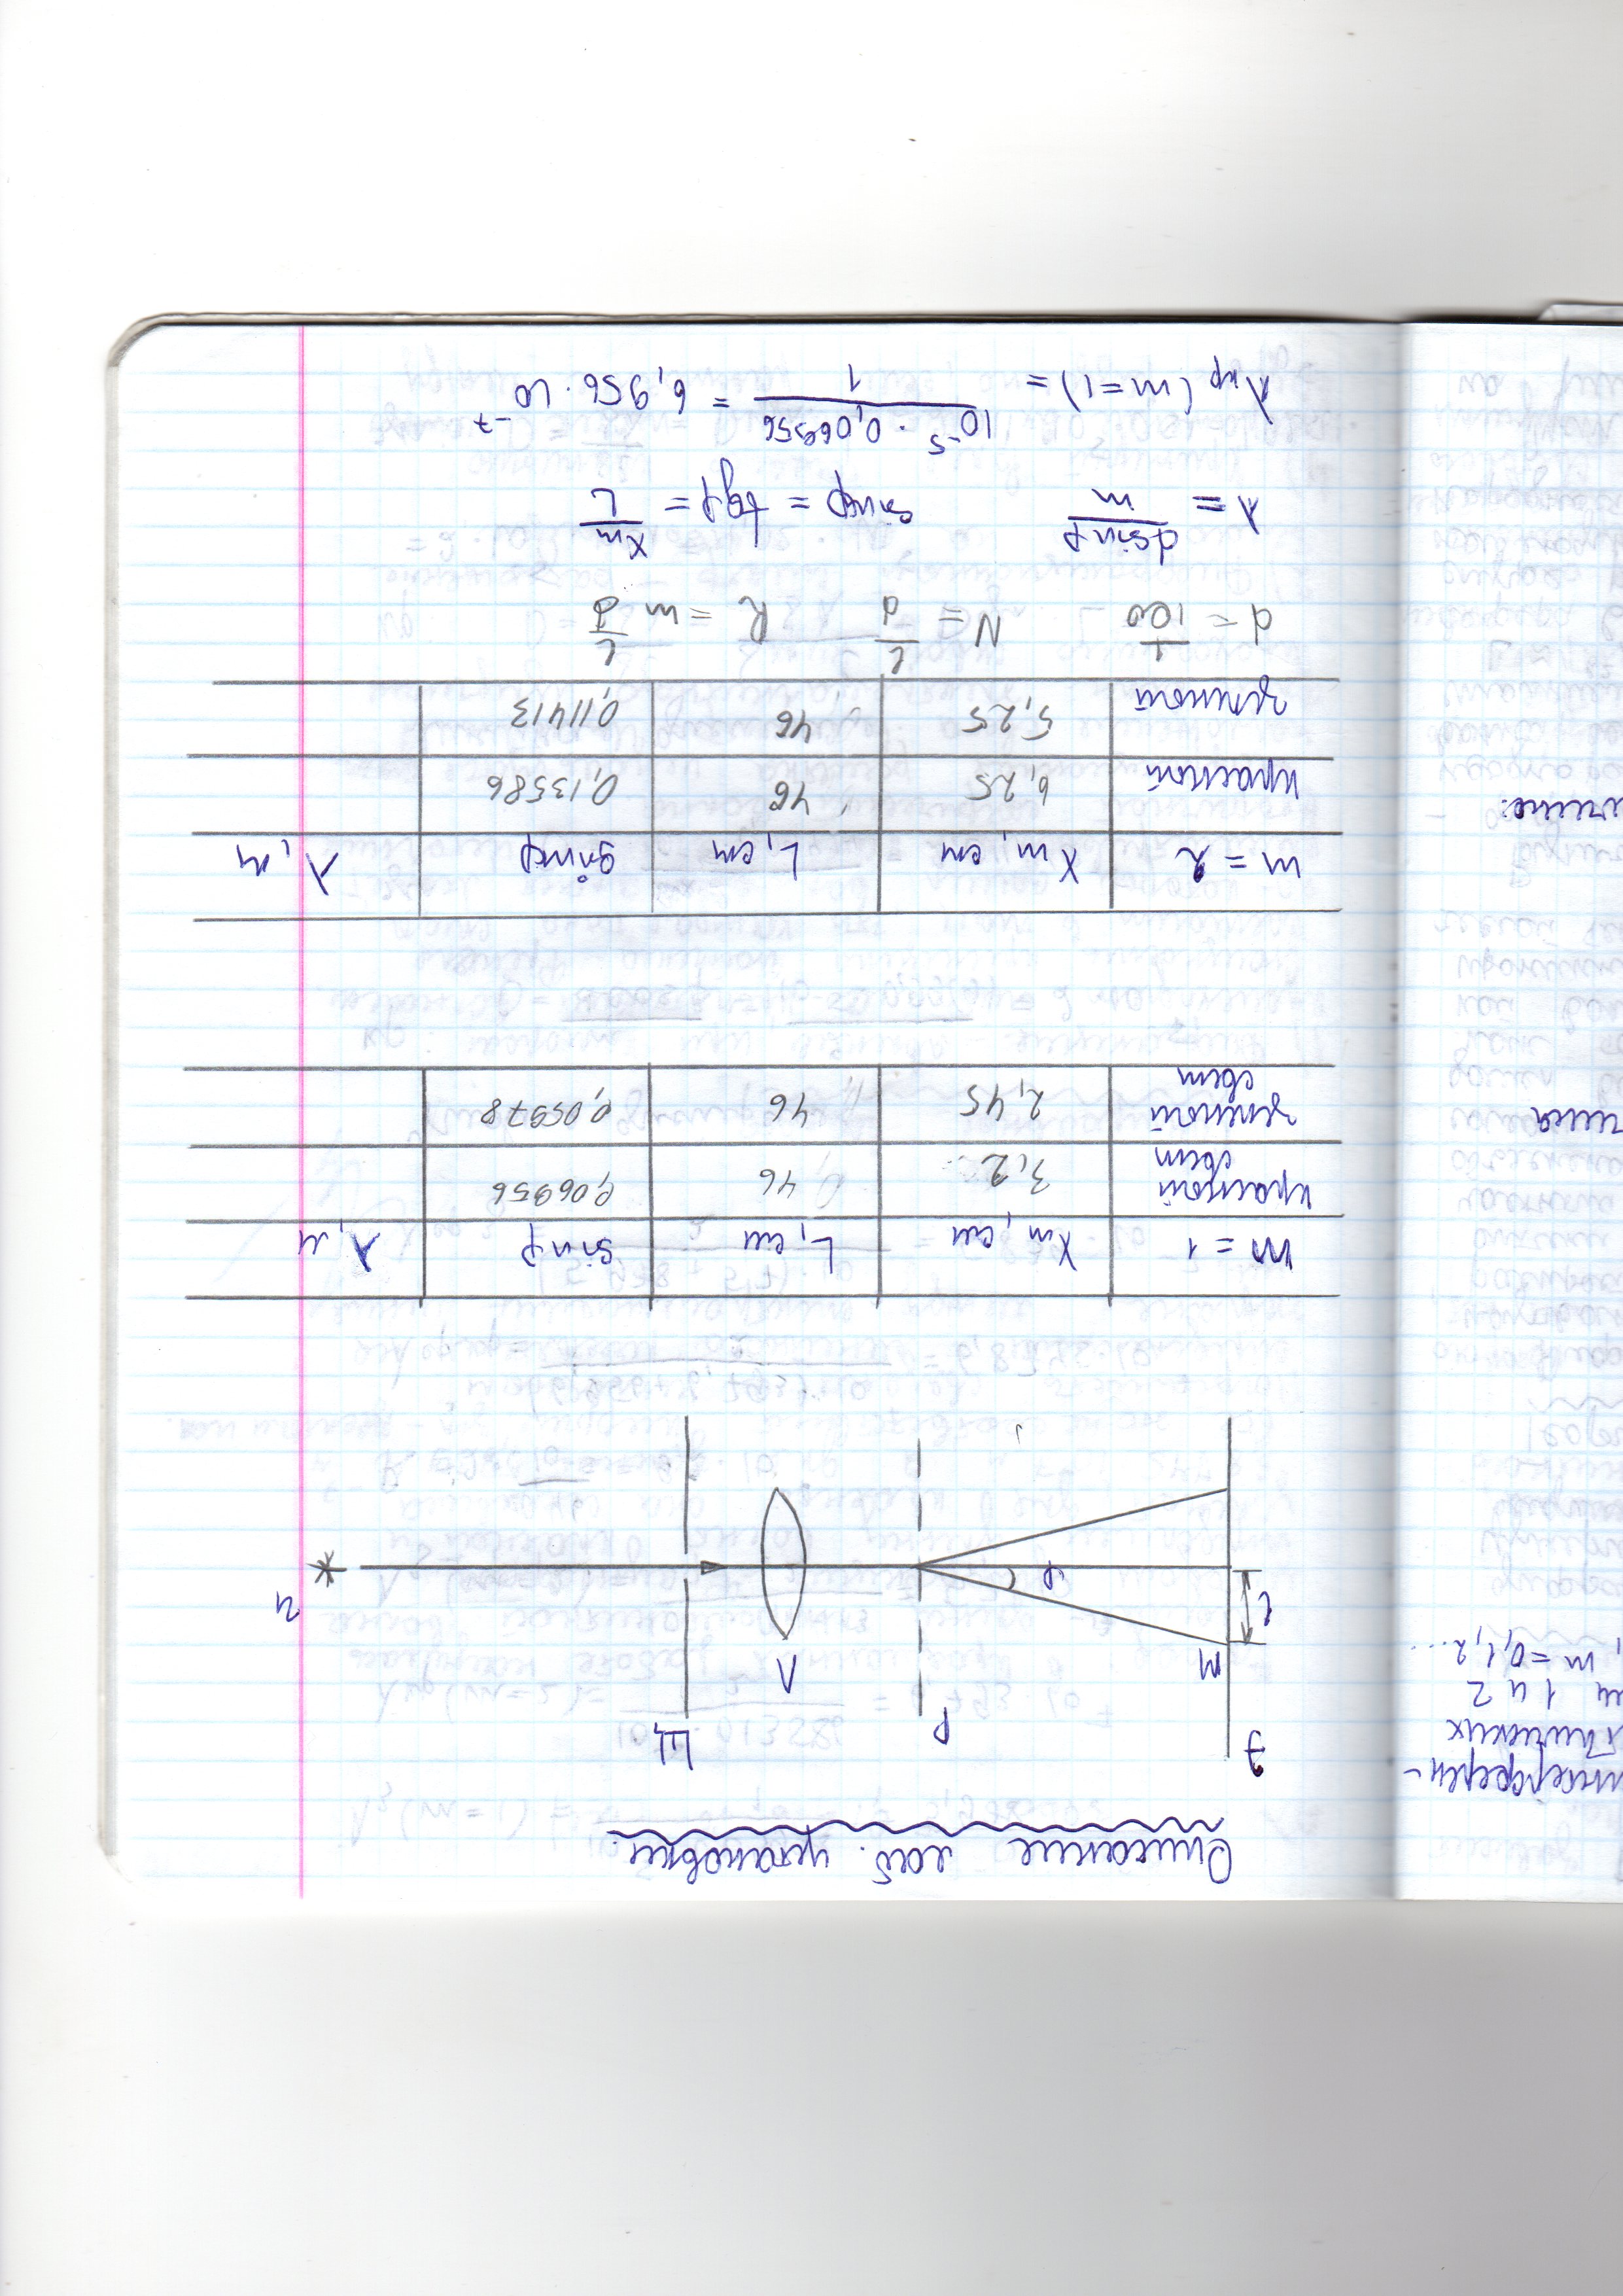 интерферен-
1 и 2
, m = 0,1,2...
Описание лаб. установки.
Э
Р
Щ
М
Л
И
l
φ
m = 1 Xm, см L, см sinφ λ, м
красный свет 3,2 46 0,06956
зеленый свет 2,45 46 0,05978
m = 2 Xm, см L, см sinφ λ, м
красный 6,25 46 0,13586
зеленый 5,25 46 0,11413
d = 1/100 N = l/d R = m l/d
λ = dsinφ/m sinφ = tgφ = Xm/L
λкр (m=1) = 10⁻⁵ · 0,06956/1 = 6,956 · 10⁻⁷